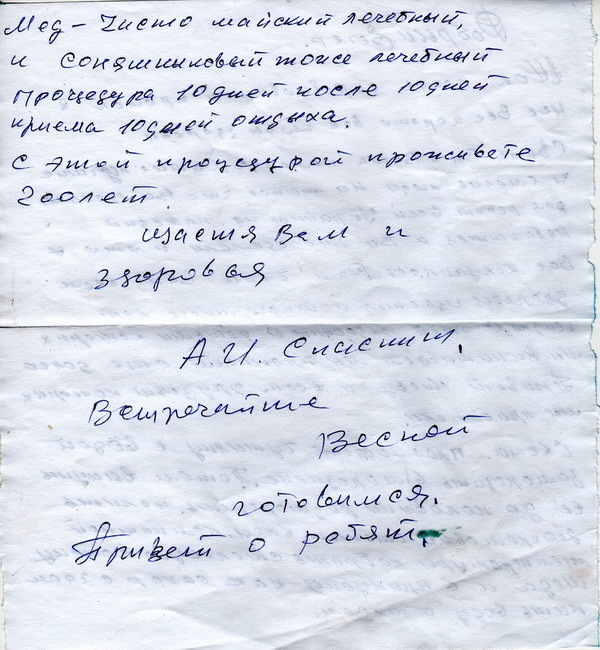 Мед – Чисто майский лечебный,
и соняшныковый тоже лечебный
процедура 10 дней после 10 дней
приема 10 дней отдыха.
С этой процедурой проживете
200 лет.
щастя Вам и
здоровая
А. И. Спаснит.
Встречайте
Весной
готовимся.
Привет о ребят.